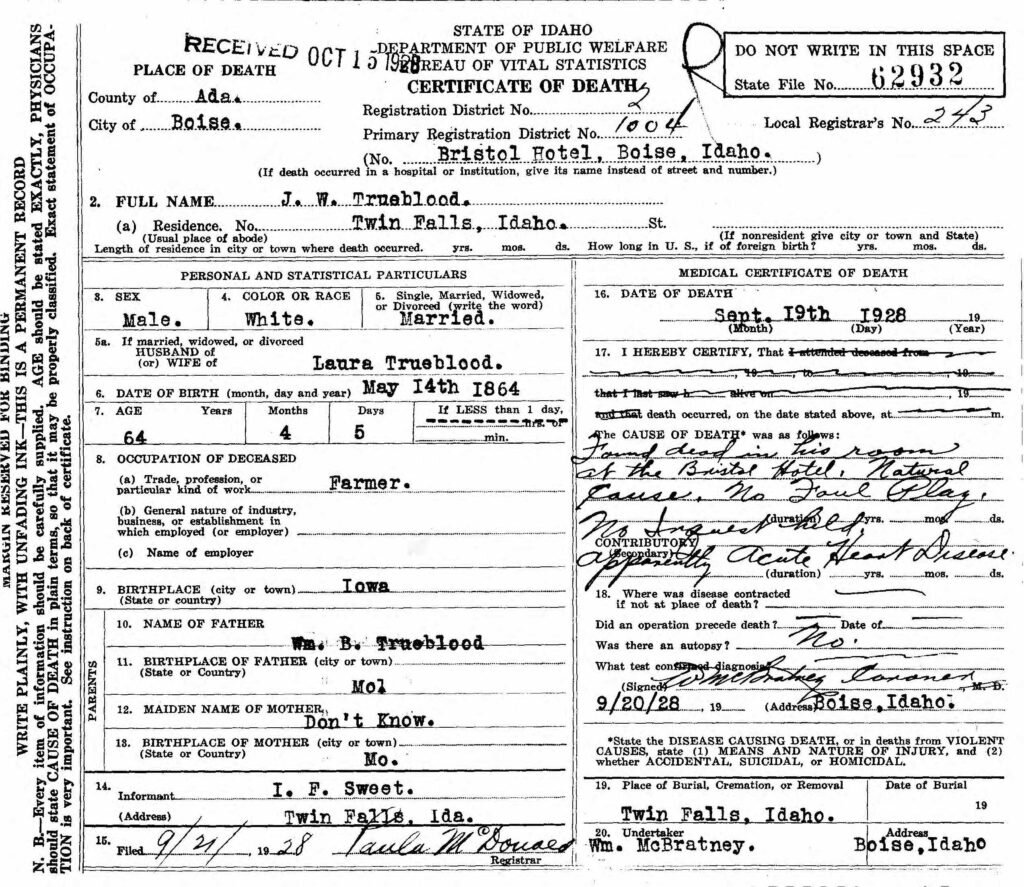 STATE OF IDAHO
RECEIVED OCT 15 1928
DEPARTMENT OF PUBLIC WELFARE
BUREAU OF VITAL STATISTICS
CERTIFICATE OF DEATH
DO NOT WRITE IN THIS SPACE
State File No. 62932
PLACE OF DEATH
County of Ada.
City of Boise.
Registration District No. 2
Primary Registration District No. 1004
Local Registrar's No. 243
(No. Bristol Hotel, Boise, Idaho.)
(If death occurred in a hospital or institution, give its name instead of street and number.)
2. FULL NAME J. W. Trueblood.
(a) Residence. No. Twin Falls, Idaho. St.
(Usual place of abode) (If nonresident give city or town and State)
Length of residence in city or town where death occurred. yrs. mos. ds. How long in U. S., if of foreign birth? yrs. mos. ds.
PERSONAL AND STATISTICAL PARTICULARS
3. SEX
Male.
4. COLOR OR RACE
White.
5. Single, Married, Widowed,
or Divorced (write the word)
Married.
5a. If married, widowed, or divorced
HUSBAND of
(or) WIFE of Laura Trueblood.
6. DATE OF BIRTH (month, day and year) May 14th 1864
7. AGE Years Months Days If LESS than 1 day,
hrs. or
64 4 5 min.
8. OCCUPATION OF DECEASED
(a) Trade, profession, or
particular kind of work Farmer.
(b) General nature of industry,
business, or establishment in
which employed (or employer)
(c) Name of employer
9. BIRTHPLACE (city or town) Iowa
(State or country)
PARENTS
10. NAME OF FATHER
Wm. B. Trueblood
11. BIRTHPLACE OF FATHER (city or town)
(State or Country)
Mol
12. MAIDEN NAME OF MOTHER
Don't Know.
13. BIRTHPLACE OF MOTHER (city or town)
(State or Country) Mo.
14.
Informant I. F. Sweet.
(Address) Twin Falls, Ida.
15.
Filed 9/21/ 1928 Paula McDonald
Registrar
MEDICAL CERTIFICATE OF DEATH
16. DATE OF DEATH
Sept. 19th 1928 19
(Month) (Day) (Year)
17. I HEREBY CERTIFY, That I attended deceased from
, 19 , to , 19
that I last saw h alive on , 19
and that death occurred, on the date stated above, at m.
The CAUSE OF DEATH* was as follows:
Found dead in his room
at the Bristol Hotel. Natural
Cause. No Foul Play.
(duration) yrs. mos. ds.
No Inquest Held
CONTRIBUTORY
(Secondary)
Apparently Acute Heart Disease.
(duration) yrs. mos. ds.
18. Where was disease contracted
if not at place of death?
Did an operation precede death? Date of
Was there an autopsy? No.
What test confirmed diagnosis
(Signed) W McBratney Coroner, M. D.
9/20/28 , 19 (Address) Boise, Idaho.
*State the DISEASE CAUSING DEATH, or in deaths from VIOLENT
CAUSES, state (1) MEANS AND NATURE OF INJURY, and (2)
whether ACCIDENTAL, SUICIDAL, or HOMICIDAL.
19. Place of Burial, Cremation, or Removal Date of Burial
Twin Falls, Idaho. 19
20. Undertaker Address
Wm. McBratney. Boise, Idaho
MARGIN RESERVED FOR BINDING
WRITE PLAINLY, WITH UNFADING INK—THIS IS A PERMANENT RECORD
N. B.—Every item of information should be carefully supplied. AGE should be stated EXACTLY, PHYSICIANS
should state CAUSE OF DEATH in plain terms, so that it may be properly classified. Exact statement of OCCUPA-
TION is very important. See instruction on back of certificate.